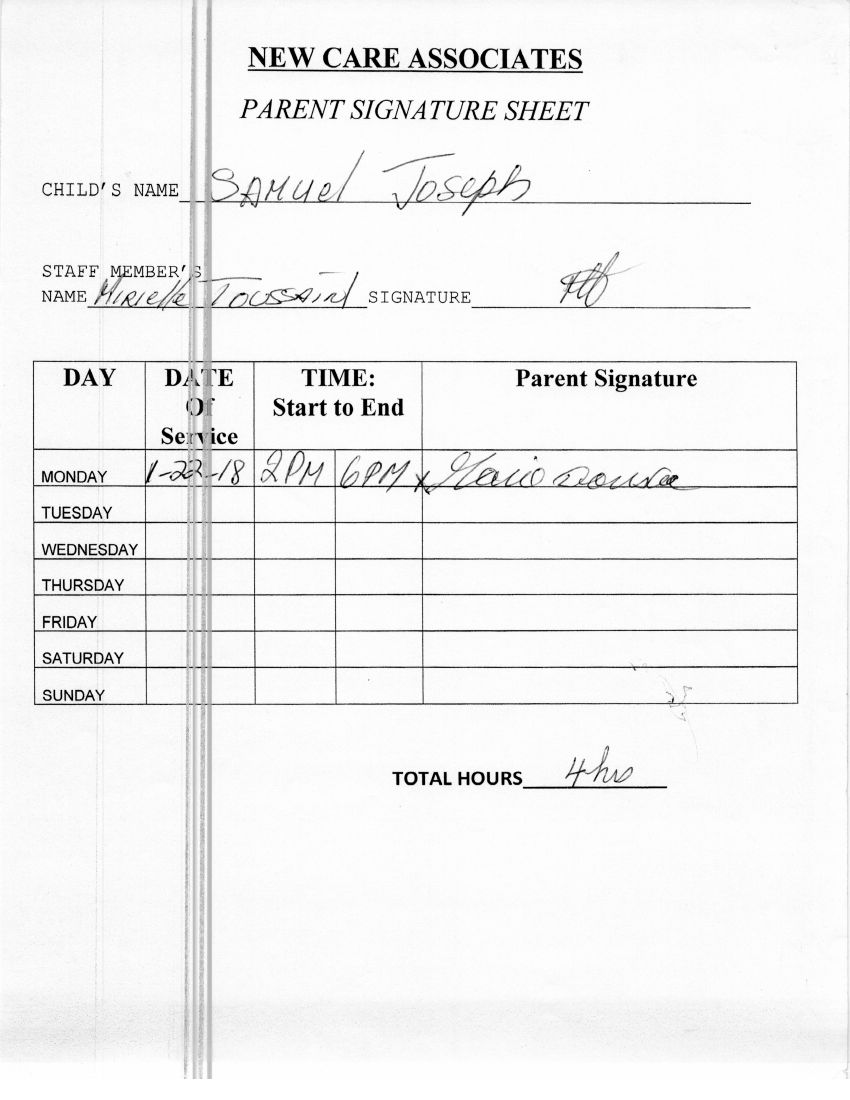 NEW CARE ASSOCIATES
PARENT SIGNATURE SHEET
CHILD'S NAME SAMUEL JOSEPH
STAFF MEMBER'S
NAME Mirielle TOUSSAINT SIGNATURE
DAY DATE Of Service TIME: Start to End Parent Signature
MONDAY 1-22-18 2PM 6PM x
TUESDAY
WEDNESDAY
THURSDAY
FRIDAY
SATURDAY
SUNDAY
TOTAL HOURS 4 hrs